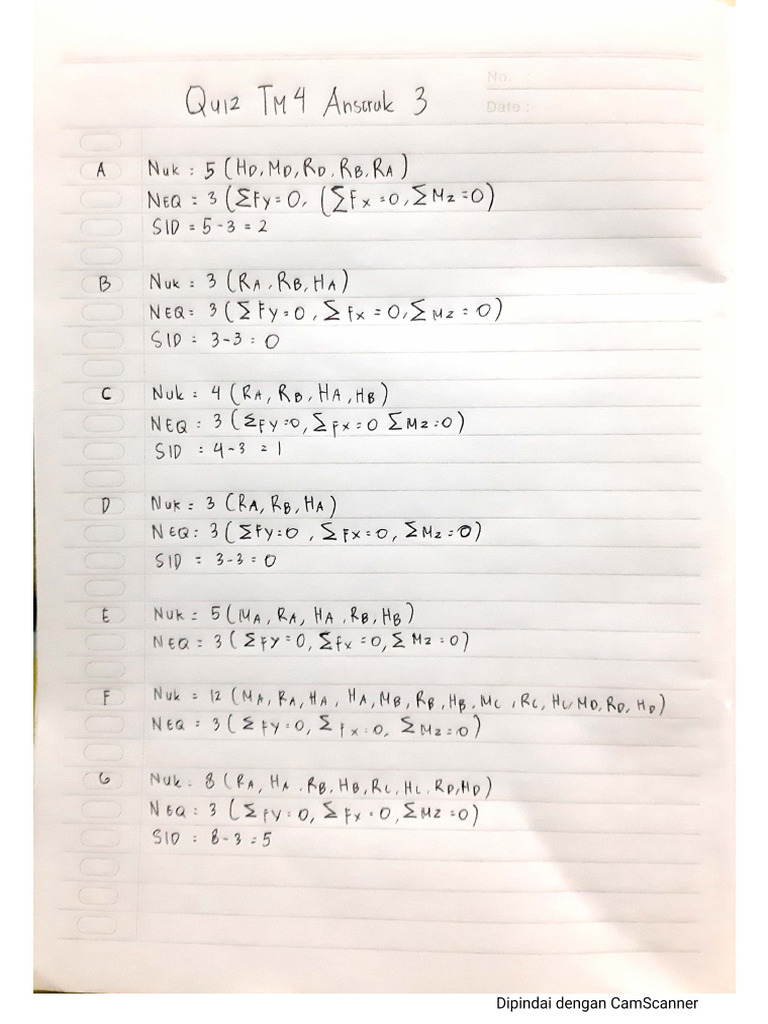 No. :
Date :
Quiz TM 4 Anstruk 3
A Nuk : 5 (HD, MD, RD, RB, RA)
NEQ = 3 (ΣFy = 0, (ΣFx = 0, ΣMz = 0)
SID = 5 - 3 = 2
B Nuk : 3 (RA, RB, HA)
NEQ = 3 (ΣFy = 0, ΣFx = 0, ΣMz = 0)
SID = 3 - 3 = 0
C Nuk = 4 (RA, RB, HA, HB)
NEQ : 3 (ΣFy = 0, ΣFx = 0 ΣMz = 0)
SID : 4 - 3 = 1
D Nuk = 3 (RA, RB, HA)
NEQ : 3 (ΣFy = 0, ΣFx = 0, ΣMz = 0)
SID = 3 - 3 = 0
E Nuk = 5 (MA, RA, HA, RB, HB)
NEQ = 3 (ΣFy = 0, Σfx = 0, ΣMz = 0)
F Nuk = 12 (MA, RA, HA, HA, MB, RB, HB, MC, RC, HC, MD, RD, HD)
NEQ = 3 (ΣFy = 0, Σfx = 0, ΣMz = 0)
G Nuk : 8 (RA, HA, RB, HB, RC, HC, RD, HD)
NEQ : 3 (ΣFy = 0, ΣFx = 0, ΣMz = 0)
SID : 8 - 3 = 5
Dipindai dengan CamScanner